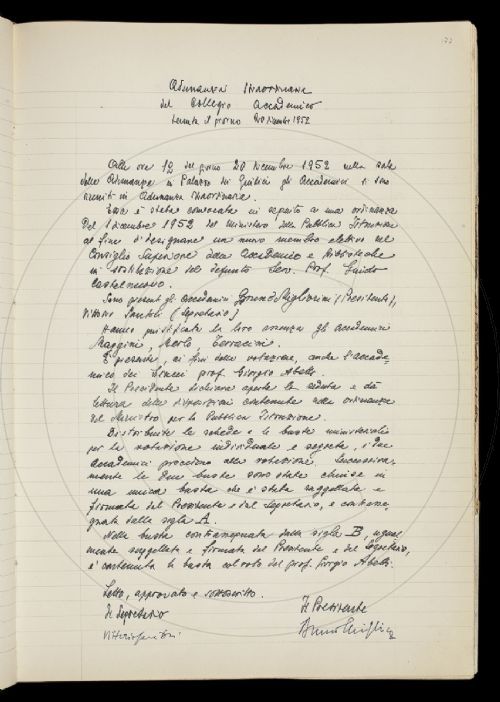 Adunanza straordinaria
del Collegio Accademico
tenuta il giorno 20 Dicembre 1952
Alle ore 12 del giorno 20 Dicembre 1952 nella sala
delle Adunanze in Palazzo dei Giudici gli Accademici si sono
riuniti in Adunanza straordinaria.
Essa è stata convocata in seguito a una ordinanza
del 1 dicembre 1952 del Ministero della Pubblica Istruzione
al fine di designare un nuovo membro elettivo nel
Consiglio Superiore delle Accademie e Biblioteche
in sostituzione del defunto Sen. Prof. Guido
Castelnuovo.
Sono presenti gli Accademici Bruno Migliorini (Presidente),
Vittorio Santoli (Segretario)
Hanno giustificato la loro assenza gli Accademici
Maggini, Merlo, Terracini.
È presente, ai fini della votazione, anche l'Accade-
mico dei Lincei prof. Giorgio Abetti.
Il Presidente dichiara aperta la seduta e dà
lettura delle disposizioni contenute nella ordinanza
del Ministro per la Pubblica Istruzione.
Distribuite le schede e le buste ministeriali
per la votazione individuale e segreta, i due
Accademici procedono alla votazione. Successiva-
mente le due buste sono state chiuse in
una unica busta che è stata suggellata e
firmata dal Presidente e dal Segretario, e contras-
segnata dalla sigla A.
Nella busta contrassegnata dalla sigla B, ugual-
mente suggellata e firmata dal Presidente e dal Segretario,
è contenuta la busta col voto del prof. Giorgio Abetti.
Letto, approvato e sottoscritto.
Il Segretario
Il Presidente
Vittorio Santoli
Bruno Migliorini